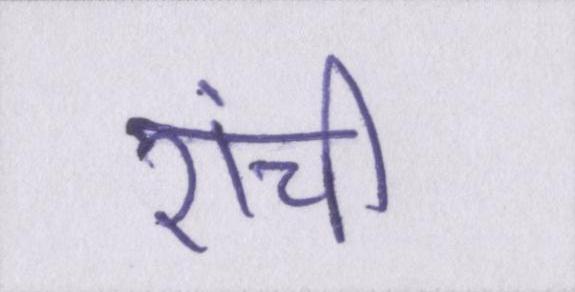 रांची